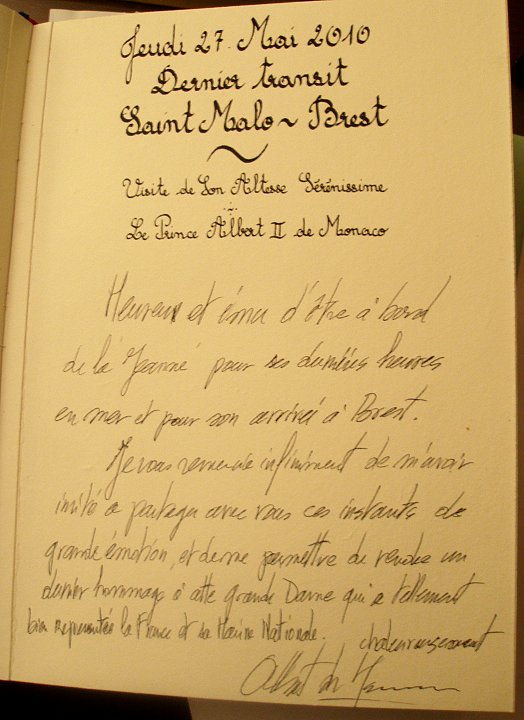 Jeudi 27 Mai 2010
Dernier transit
Saint Malo ~ Brest
Visite de Son Altesse Sérénissime
Le Prince Albert II de Monaco
Heureux et ému d'être à bord
de la "Jeanne" pour ses dernières heures
en mer et pour son arrivée à Brest.
Je vous remercie infiniment de m'avoir
invité à partager avec vous ces instants de
grande émotion, et de me permettre de rendre un
dernier hommage à cette grande Dame qui a tellement
bien représentée la France et sa Marine Nationale.
chaleureusement
Albert de